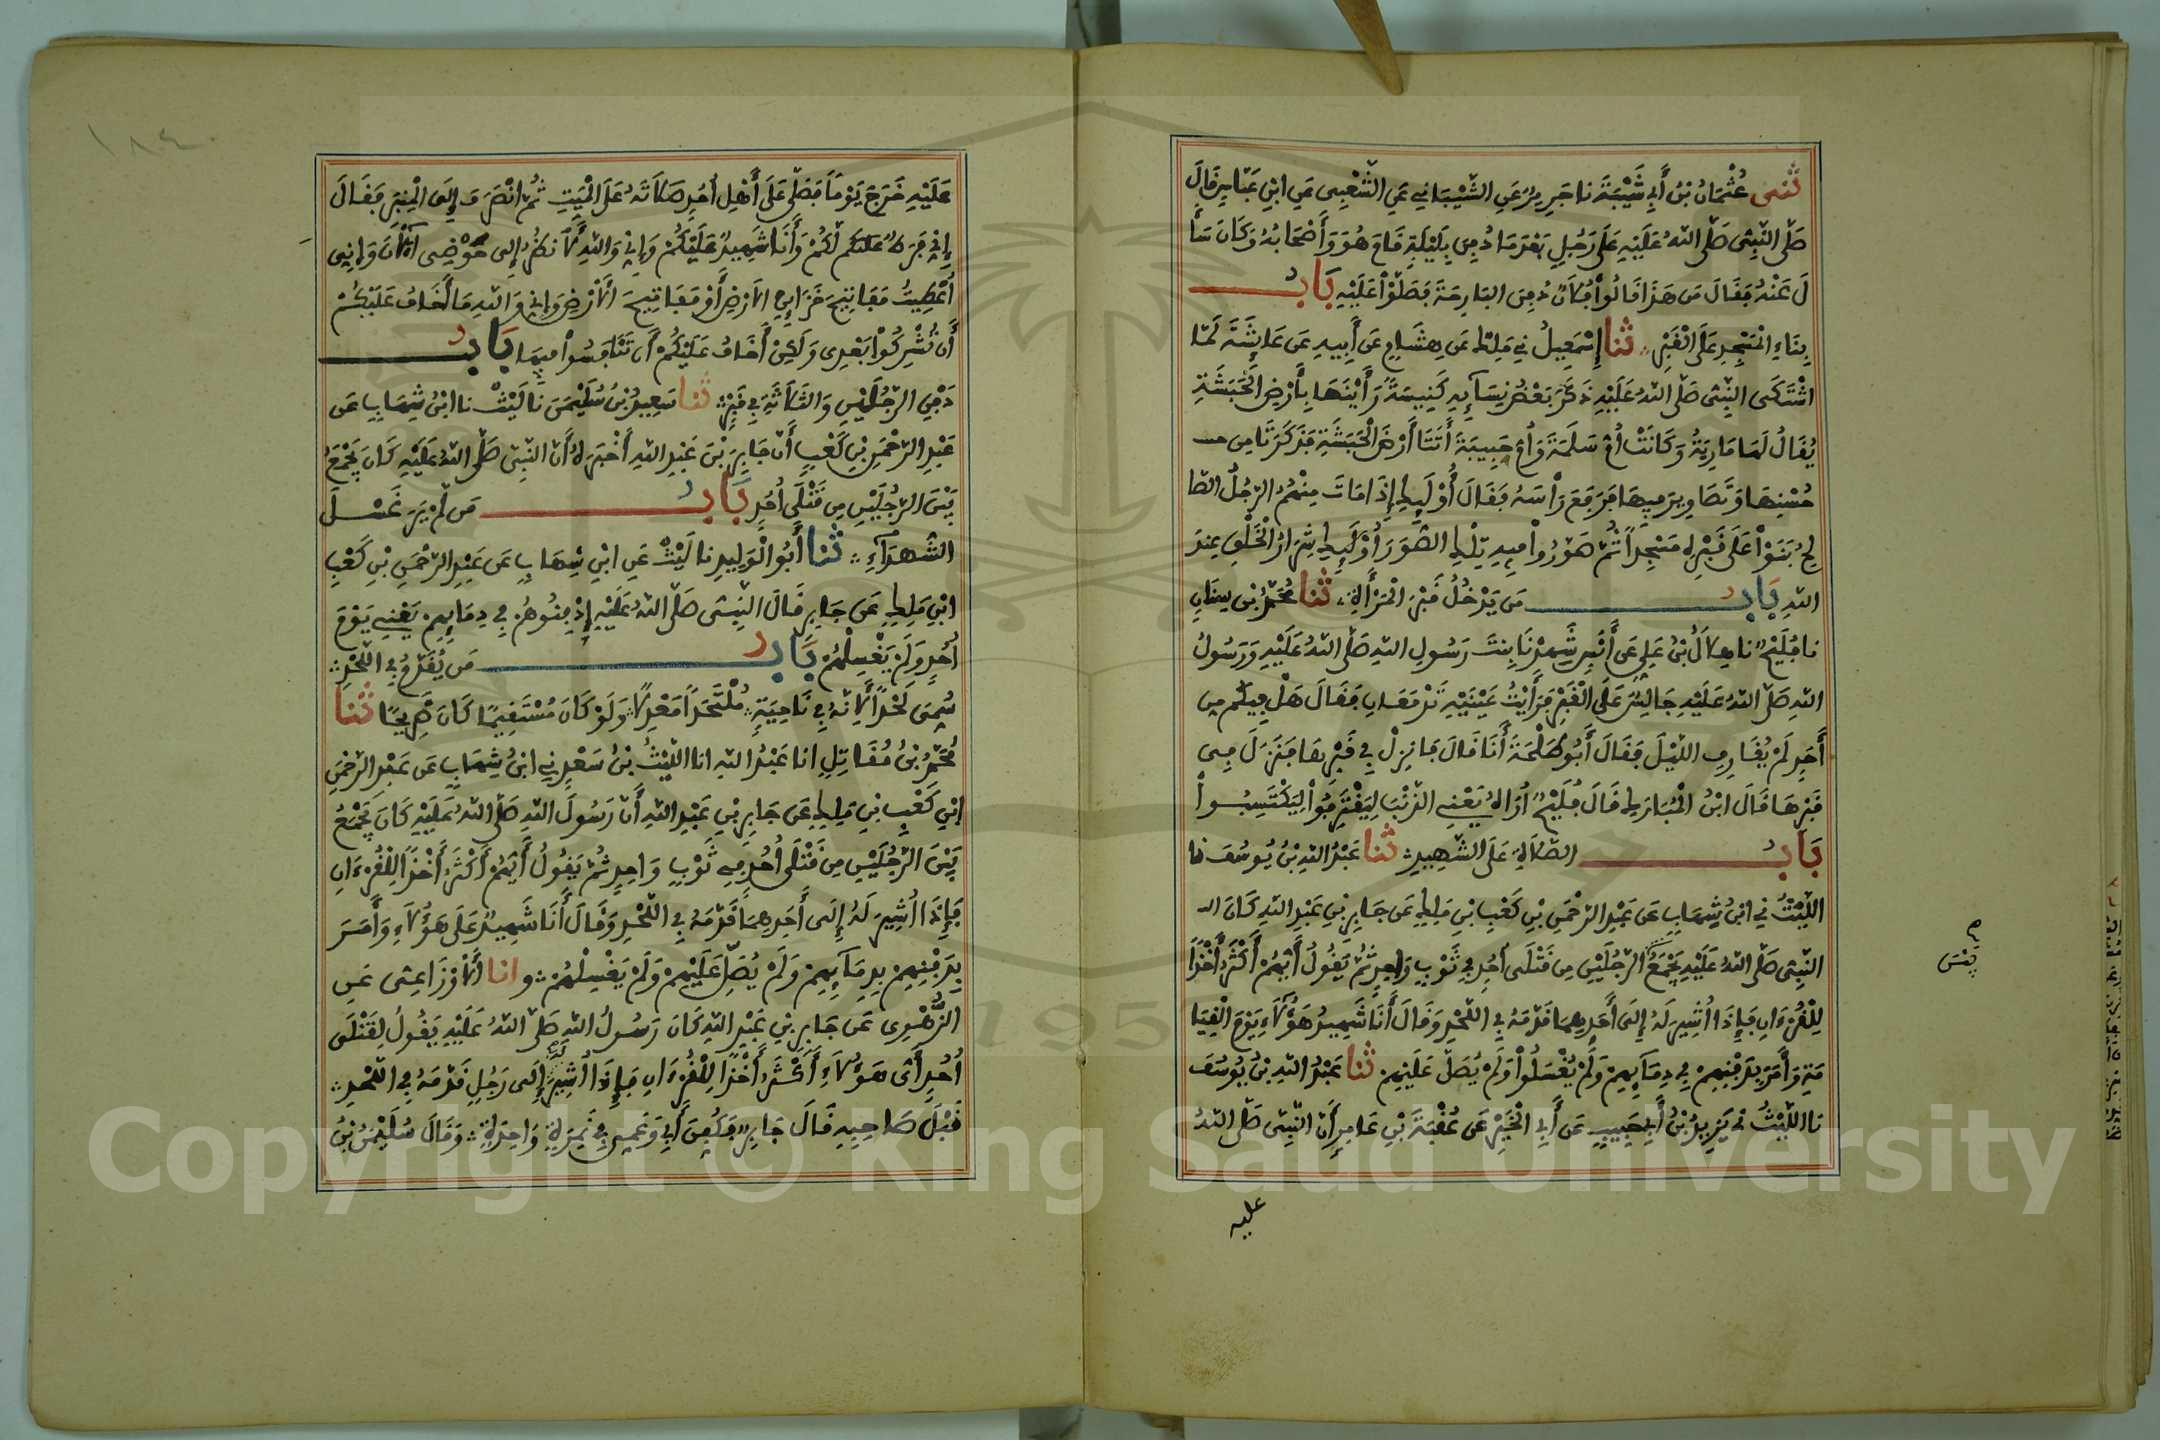 ثنى عُثْمَانُ بْنُ أَبِي شَيْبَةَ نا جَرِيرٌ عَنِ الشَّيْبَانِي عَنِ الشَّعْبِي عَنِ ابْنِ عَبَّاسٍ قَالَ
صَلَّى النَّبِيُّ صَلَّى اللهُ عَلَيْهِ عَلَى رَجُلٍ بَعْدَ مَا دُفِنَ بِلَيْلَةٍ قَامَ هُوَ وَأَصْحَابُهُ وَكَانَ سَأَ
لَ عَنْهُ فَقَالَ مَنْ هَذَا قَالُوا فُلَانٌ دُفِنَ الْبَارِحَةَ فَصَلَّوْا عَلَيْهِ بَابُ
بِنَاءِ الْمَسْجِدِ عَلَى الْقَبْرِ ثنا إِسْمَعِيلُ ني مَلِكٌ عَنْ هِشَامٍ عَنْ أَبِيهِ عَنْ عَائِشَةَ لَمَّا
اشْتَكَى النَّبِيُّ صَلَّى اللهُ عَلَيْهِ ذَكَرَ بَعْضُ نِسَآئِهِ كَنِيسَةً رَأَيْنَهَا بِأَرْضِ الْحَبَشَةِ
يُقَالُ لَهَا مَارِيَةُ وَكَانَتْ أُمُّ سَلَمَةَ وَأُمُّ حَبِيبَةَ أَتَتَا أَرْضَ الْحَبَشَةِ فَذَكَرَتَا مِنْ
حُسْنِهَا وَتَصَاوِيرَ فِيهَا فَرَفَعَ رَأْسَهُ فَقَالَ أُوْلَئِكِ إِذَا مَاتَ مِنْهُمُ الرَّجُلُ الصَّا
لِحُ بَنَوْا عَلَى قَبْرِهِ مَسْجِدًا ثُمَّ صَوَّرُوا فِيهِ تِلْكَ الصُّوَرَ أُوْلَئِكِ شِرَارُ الْخَلْقِ عِنْدَ
اللهِ بَابُ مَنْ يَدْخُلُ قَبْرَ الْمَرْأَةِ ثنا مُحَمَّدُ بْنُ سِنَانٍ
نا فُلَيْحٌ نا هِلَالُ بْنُ عَلِي عَنْ أَنَسٍ شَهِدْنَا بِنْتَ رَسُولِ اللهِ صَلَّى اللهُ عَلَيْهِ وَرَسُولُ
اللهِ صَلَّى اللهُ عَلَيْهِ جَالِسٌ عَلَى الْقَبْرِ فَرَأَيْتُ عَيْنَيْهِ تَدْمَعَانِ فَقَالَ هَلْ فِيكُمْ مِنْ
أَحَدٍ لَمْ يُقَارِفِ اللَّيْلَةَ فَقَالَ أَبُو طَلْحَةَ أَنَا قَالَ فَانْزِلْ فِي قَبْرِهَا فَنَزَلَ فِي
قَبْرِهَا قَالَ ابْنُ الْمُبَارَكِ قَالَ فُلَيْحٌ أُرَاهُ يَعْنِي الذَّنْبَ لِيَقْتَرِفُوا لِيَكْتَسِبُوا
بَابُ الصَّلَاةِ عَلَى الشَّهِيدِ ثنا عَبْدُ اللهِ بْنُ يُوسُفَ نا
اللَّيْثُ ني ابْنُ شِهَابٍ عَنْ عَبْدِ الرَّحْمَنِ بْنِ كَعْبِ بْنِ مَلِكٍ عَنْ جَابِرِ بْنِ عَبْدِ اللهِ كَانَ الـ
النَّبِيُّ صَلَّى اللهُ عَلَيْهِ يَجْمَعُ الرَّجُلَيْنِ مِنْ قَتْلَى أُحُدٍ فِي ثَوْبٍ وَاحِدٍ ثُمَّ يَقُولُ أَيُّهُمْ أَكْثَرُ أَخْذًا
لِلْقُرْءَانِ فَإِذَا أُشِيرَ لَهُ إِلَى أَحَدِهِمَا قَدَّمَهُ فِي اللَّحْدِ وَقَالَ أَنَا شَهِيدُ هَؤُلَاءِ يَوْمَ الْقِيَا
مَةِ وَأَمَرَ بِدَفْنِهِمْ فِي دِمَآئِهِمْ وَلَمْ يُغْسَلُوا وَلَمْ يُصَلَّ عَلَيْهِمْ ثنا عَبْدُ اللهِ بْنُ يُوسُفَ
نَا اللَّيْثُ ني يَزِيدُ بْنُ أَبِي حَبِيبٍ عَنْ أَبِي الْخَيْرِ عَنْ عُقْبَةَ بْنِ عَامِرٍ أَنَّ النَّبِيَّ صَلَّى اللهُ
عليه
بَيْنَ
١٨٤
عَلَيْهِ خَرَجَ يَوْمًا فَصَلَّى عَلَى أَهْلِ أُحُدٍ صَلَاتَهُ عَلَى الْمَيِّتِ ثُمَّ انْصَرَفَ إِلَى الْمِنْبَرِ فَقَالَ
إِنِّي فَرَطٌ لَكُمْ وَأَنَا شَهِيدٌ عَلَيْكُمْ وَإِنِّي وَاللهِ لَأَنْظُرُ إِلَى حَوْضِي الْآنَ وَإِنِّي
أُعْطِيتُ مَفَاتِيحَ خَزَائِنِ الْأَرْضِ أَوْ مَفَاتِيحَ الْأَرْضِ وَإِنِّي وَاللهِ مَا أَخَافُ عَلَيْكُمْ
أَنْ تُشْرِكُوا بَعْدِي وَلَكِنْ أَخَافُ عَلَيْكُمْ أَنْ تَنَافَسُوا فِيهَا بَابُ
دَفْنِ الرَّجُلَيْنِ وَالثَّلَاثَةِ فِي قَبْرٍ ثنا سَعِيدُ بْنُ سُلَيْمَنَ نَا لَيْثٌ نا ابْنُ شِهَابٍ عَنْ
عَبْدِ الرَّحْمَنِ بْنِ كَعْبٍ أَنَّ جَابِرَ بْنَ عَبْدِ اللهِ أَخْبَرَهُ أَنَّ النَّبِيَّ صَلَّى اللهُ عَلَيْهِ كَانَ يَجْمَعُ
بَيْنَ الرَّجُلَيْنِ مِنْ قَتْلَى أُحُدٍ بَابُ مَنْ لَمْ يَرَ غَسْلَ
الشُّهَدَآءِ ثنا أَبُو الْوَلِيدِ نا لَيْثٌ عَنِ ابْنِ شِهَابٍ عَنْ عَبْدِ الرَّحْمَنِ بْنِ كَعْبِ
ابْنِ مَلِكٍ عَنْ جَابِرٍ قَالَ النَّبِيُّ صَلَّى اللهُ عَلَيْهِ إِدْفِنُوهُمْ فِي دِمَائِهِمْ يَعْنِي يَوْمَ
أُحُدٍ وَلَمْ يَغْسِلْهُمْ بَابُ مَنْ يُقَدَّمُ فِي اللَّحْدِ
سُمِّيَ لَحْدًا لِأَنَّهُ فِي نَاحِيَةٍ مُلْتَحَدًا مَعْدِلًا وَلَوْ كَانَ مُسْتَقِيمًا كَانَ ضَرِيحًا ثنا
مُحَمَّدُ بْنُ مُقَاتِلٍ انا عَبْدُ اللهِ انا اللَّيْثُ بْنُ سَعْدٍ ني ابْنُ شِهَابٍ عَنْ عَبْدِ الرَّحْمَنِ
ابْنِ كَعْبِ بْنِ مَلِكٍ عَنْ جَابِرِ بْنِ عَبْدِ اللهِ أَنَّ رَسُولَ اللهِ صَلَّى اللهُ عَلَيْهِ كَانَ يَجْمَعُ
بَيْنَ الرَّجُلَيْنِ مِنْ قَتْلَى أُحُدٍ فِي ثَوْبٍ وَاحِدٍ ثُمَّ يَقُولُ أَيُّهُمْ أَكْثَرُ أَخْذًا لِلْقُرْءَانِ
فَإِذَا أُشِيرَ لَهُ إِلَى أَحَدِهِمَا قَدَّمَهُ فِي اللَّحْدِ وَقَالَ أَنَا شَهِيدٌ عَلَى هَؤُلَاءِ وَأَمَرَ
بِدَفْنِهِمْ بِدِمَآئِهِمْ وَلَمْ يُصَلِّ عَلَيْهِمْ وَلَمْ يَغْسِلْهُمْ وانا الْأَوْزَاعِيُّ عَنِ
الزُّهْرِي عَنْ جَابِرِ بْنِ عَبْدِ اللهِ كَانَ رَسُولُ اللهِ صَلَّى اللهُ عَلَيْهِ يَقُولُ لِقَتْلَى
أُحُدٍ أَيُّ هَؤُلَاءِ أَكْثَرُ أَخْذًا لِلْقُرْءَانِ فَإِذَا أُشِيرَ لَهُ إِلَى رَجُلٍ قَدَّمَهُ فِي اللَّحْدِ
قَبْلَ صَاحِبِهِ قَالَ جَابِرٌ فَكُفِّنَ أَبِي وَعَمِّي فِي نَمِرَةٍ وَاحِدَةٍ وَقَالَ سُلَيْمَنُ بْنُ
Copyright © King Saud University